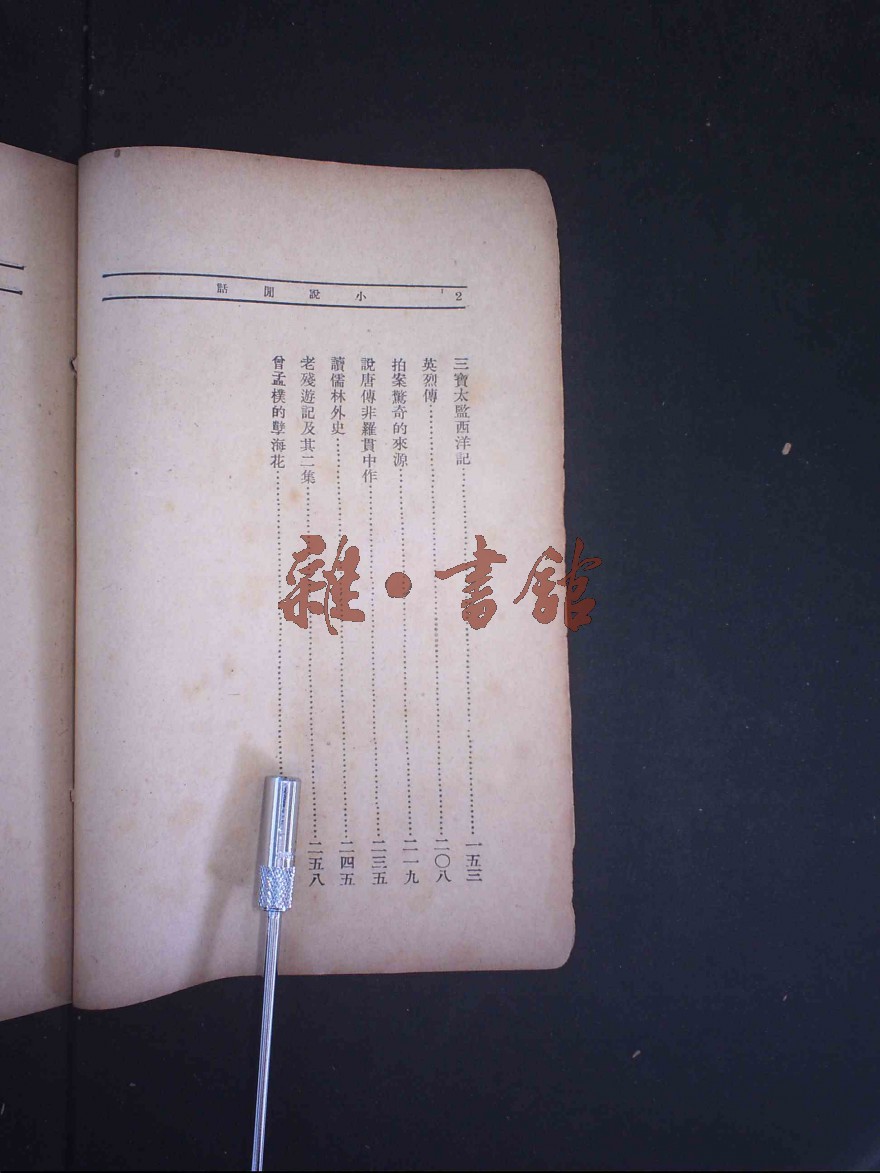 2 小說閒話
三寶太監西洋記……一五三
英烈傳……二〇八
拍案驚奇的來源……二一九
說唐傳非羅貫中作……二三五
讀儒林外史……二四五
老殘遊記及其二集……二五八
曾孟樸的孽海花……
雜·書館